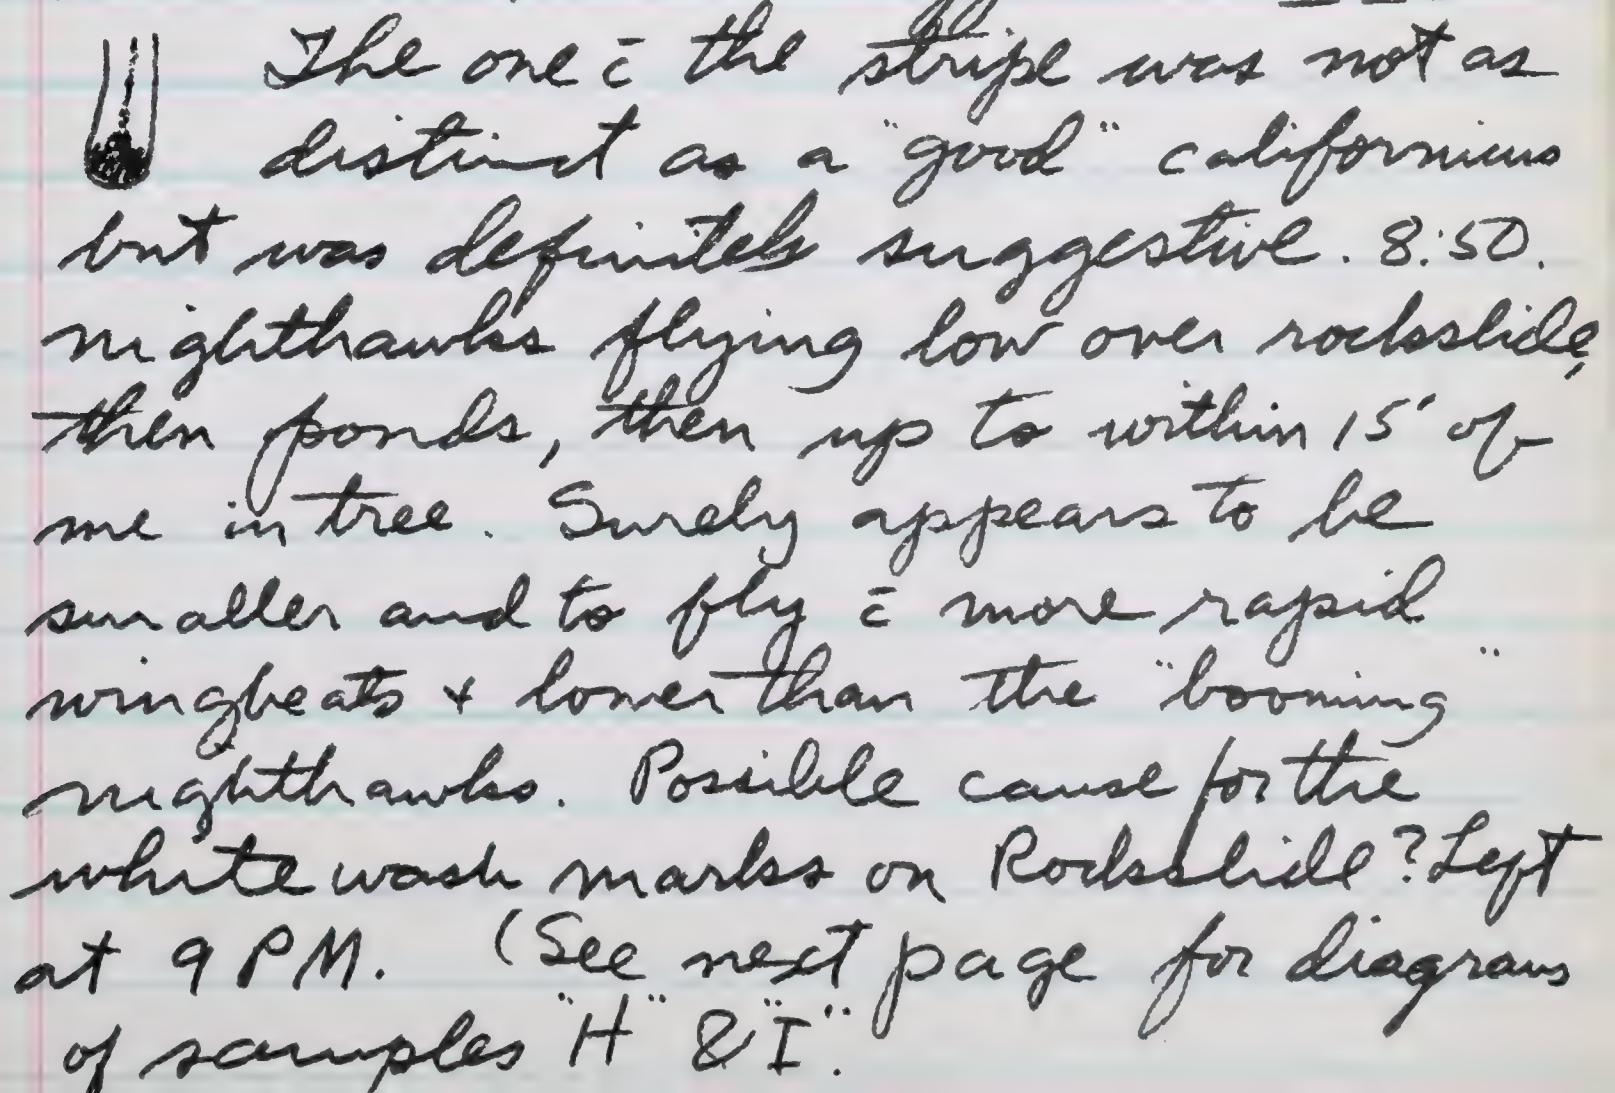 The one c̄ the stripe was not as
distinct as a "good" californicus
but was definitely suggestive. 8:50.
nighthawks flying low over rockslide,
then ponds, then up to within 15' of
me in tree. Surely appears to be
smaller and to fly c̄ more rapid
wingbeats & lower than the "booming"
nighthawks. Possible cause for the
white wash marks on Rockslide? Left
at 9 PM. (See next page for diagrams
of samples "H" & "I".